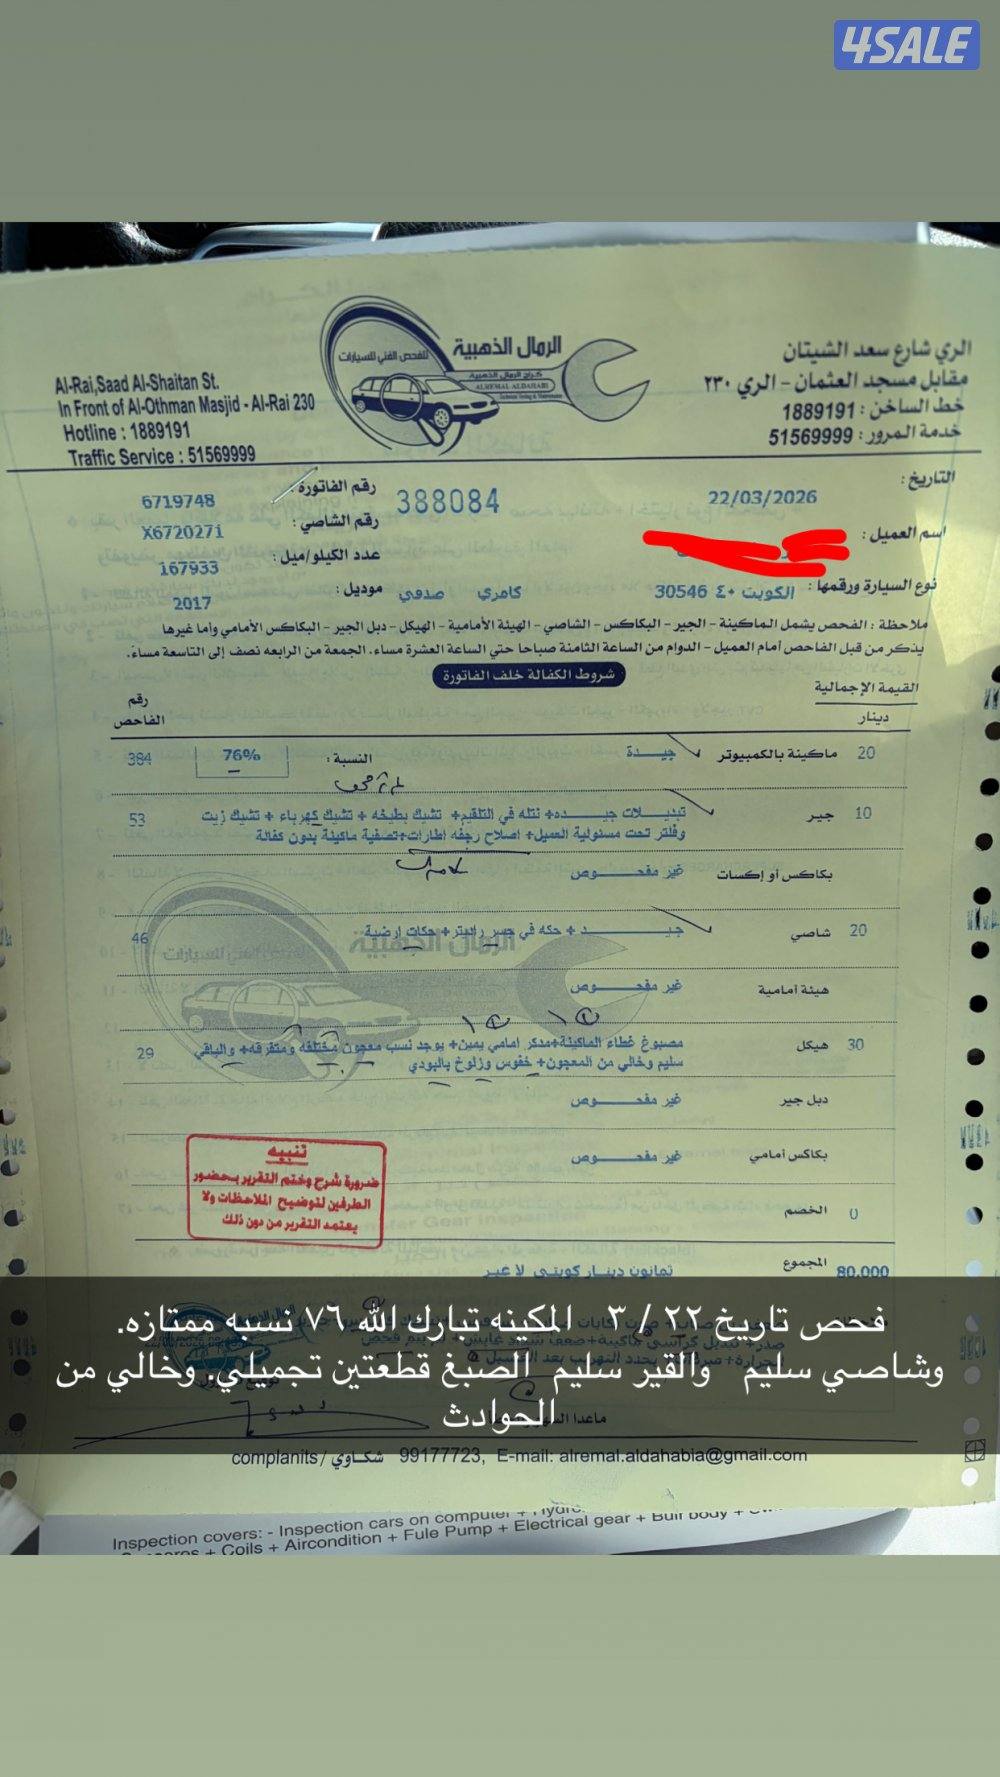 4SALE
الرمال الذهبية
للفحص الفني للسيارات
كراج الرمال الذهبية
ALREMAL ALDAHABI
Al-Rai,Saad Al-Shaitan St.
In Front of Al-Othman Masjid - Al-Rai 230
Hotline : 1889191
Traffic Service : 51569999
الري شارع سعد الشيتان
مقابل مسجد العثمان - الري ٢٣٠
خط الساخن : 1889191
خدمة المرور : 51569999
التاريخ : 22/03/2026
388084
رقم الفاتورة : 6719748
اسم العميل :
رقم الشاصي : X6720271
عدد الكيلو/ميل : 167933
نوع السيارة ورقمها : الكويت ٤٠ 30546 كامري صدفي
موديل : 2017
ملاحظة : الفحص يشمل الماكينة - الجير - البكاكس - الشاصي - الهيئة الأمامية - الهيكل - دبل الجير - البكاكس الأمامي وأما غيرها
يذكر من قبل الفاحص أمام العميل - الدوام من الساعة الثامنة صباحا حتي الساعة العشرة مساء. الجمعة من الرابعه نصف إلى التاسعة مساء.
شروط الكفالة خلف الفاتورة
القيمة الإجمالية
دينار
رقم الفاحص
20 ماكينة بالكمبيوتر جيدة النسبة : 76% 384
10 جير تبديلات جيده+ نتله في التلقيم+ تشيك بطيخه + تشيك كهرباء + تشيك زيت 53
وفلتر تحت مسئولية العميل+ اصلاح رجفه اطارات+تصفية ماكينة بدون كفالة
بكاكس أو إكسات غير مفحوص
20 شاصي جيد + حكه في جسر راديتر+ حكات ارضية 46
هيئة أمامية غير مفحوص
30 هيكل مصبوغ غطاء الماكينة+مدكر امامي يمين+ يوجد نسب معجون مختلفه ومتفرقه+ والباقي 29
سليم وخالي من المعجون+ خفوس وزلوخ بالبودي
دبل جير غير مفحوص
بكاكس أمامي غير مفحوص
تنبيه
ضرورة شرح وختم التقرير بحضور
الطرفين لتوضيح الملاحظات ولا
يعتمد التقرير من دون ذلك
الخصم 0
المجموع 80.000
ثمانون دينار كويتي لا غير
فحص تاريخ ٢٢ / ٣ . المكينه تبارك الله ٧٦ نسبه ممتازه.
وشاصي سليم والقير سليم الصبغ قطعتين تجميلي. وخالي من
الحوادث
complanits / شكاوي 99177723, E-mail: alremal.aldahabia@gmail.com
Inspection covers: - Inspection cars on computer
+ Coils + Aircondition + Fule Pump + Electrical gear + Bull body +